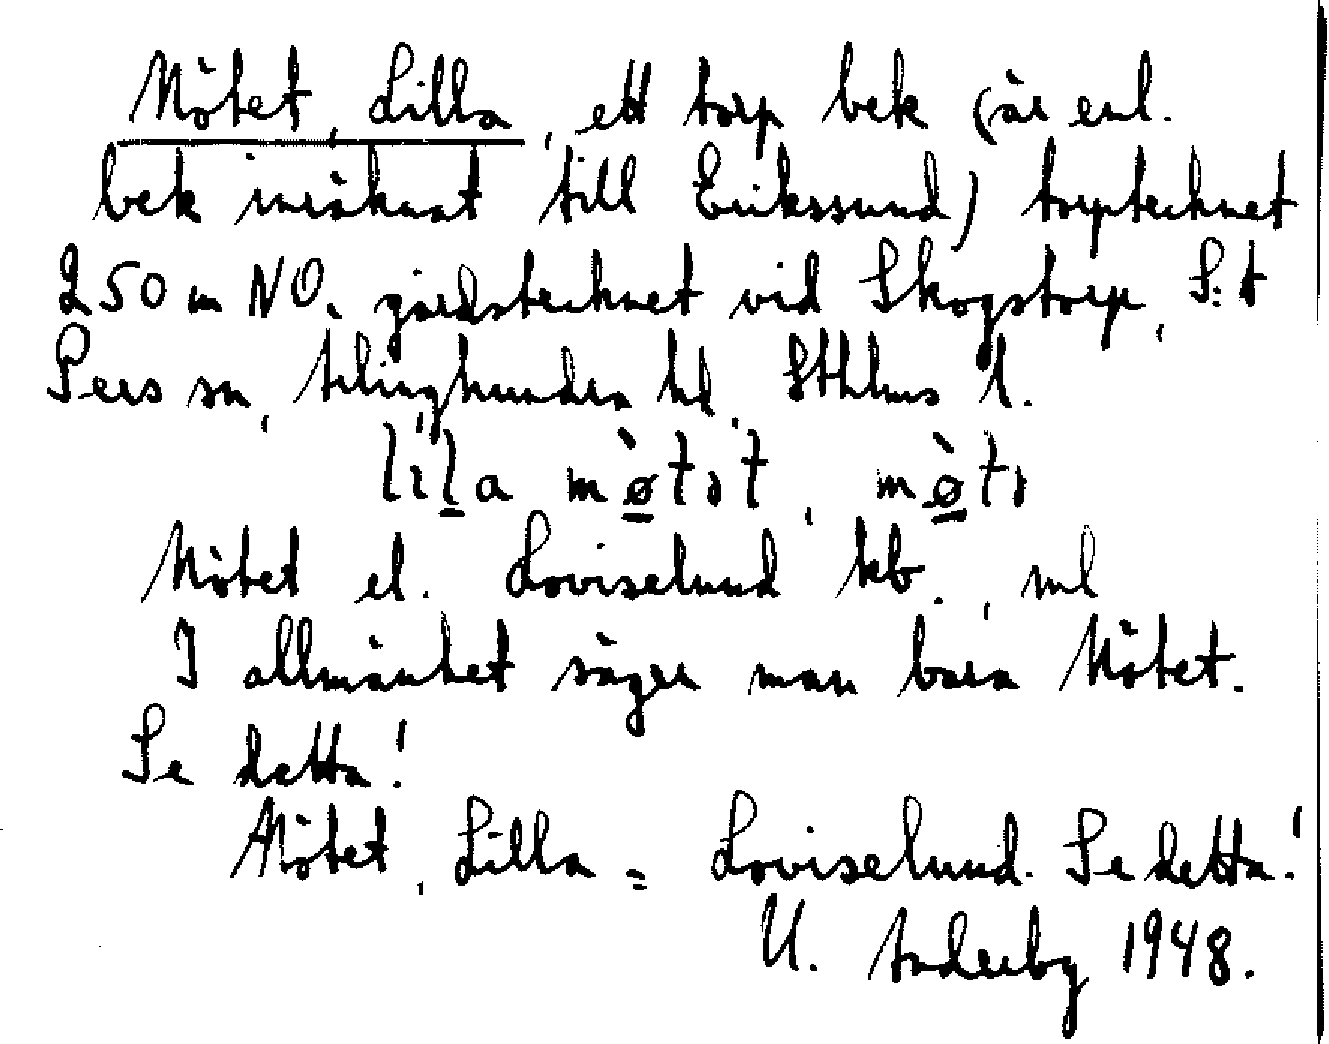 Mötet, Lilla, ett torp bek (är enl.
bek inräknat till Erikssund) torptecknet
250 m NO. gårdstecknet vid Skogstorp, S:t
Pers sn, Ärlinghundra hd, Sthlms l.
lila mø̀tət, mø̀tə
Mötet el. Loviselund kb., ml
I allmänhet säger man bara Mötet.
Se detta!
Mötet, Lilla = Loviselund. Se detta!
U. Anderby 1948.